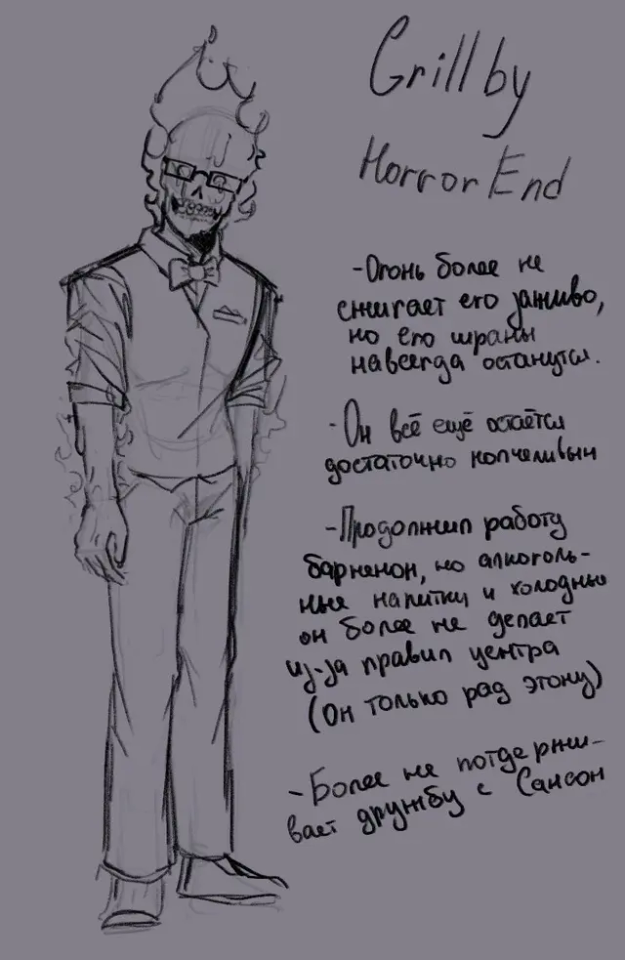 Grillby
HorrorEnd
-Огонь более не
сжигает его заживо,
но его шрамы
навсегда останутся.
-Он всё ещё остаётся
достаточно
-Продолжил работу
барменом, но алкоголь-
ные напитки и холодные
он более не делает
из-за правил центра
(Он только рад этому)
-Более не потдержи-
вает дружбу с Сансом